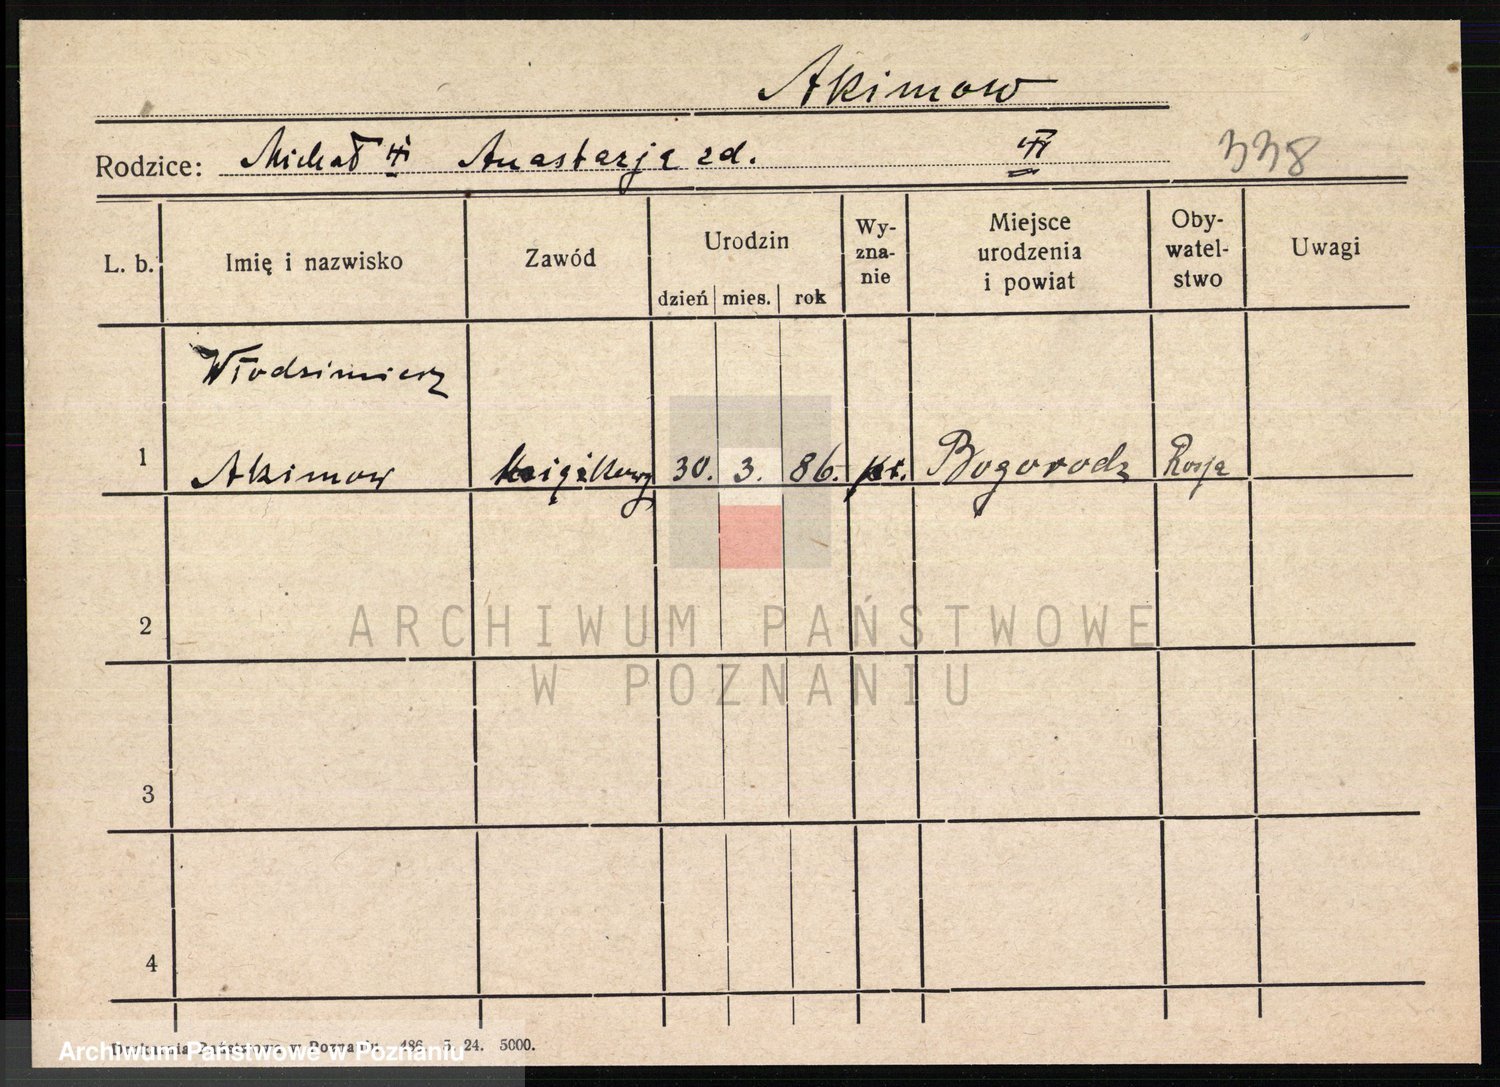 Akimow
Rodzice: Michał Anastazja zd. 338
L. b. Imię i nazwisko Zawód Urodzin dzień mies. rok Wy-zna-nie Miejsce urodzenia i powiat Oby-watel-stwo Uwagi
Włodzimierz
1 Akimow 30. 3. 86. Bogorodz Rosja
2
ARCHIWUM PAŃSTWOWE
W POZNANIU
3
4
Archiwum Państwowe w Poznaniu
24. 5000.